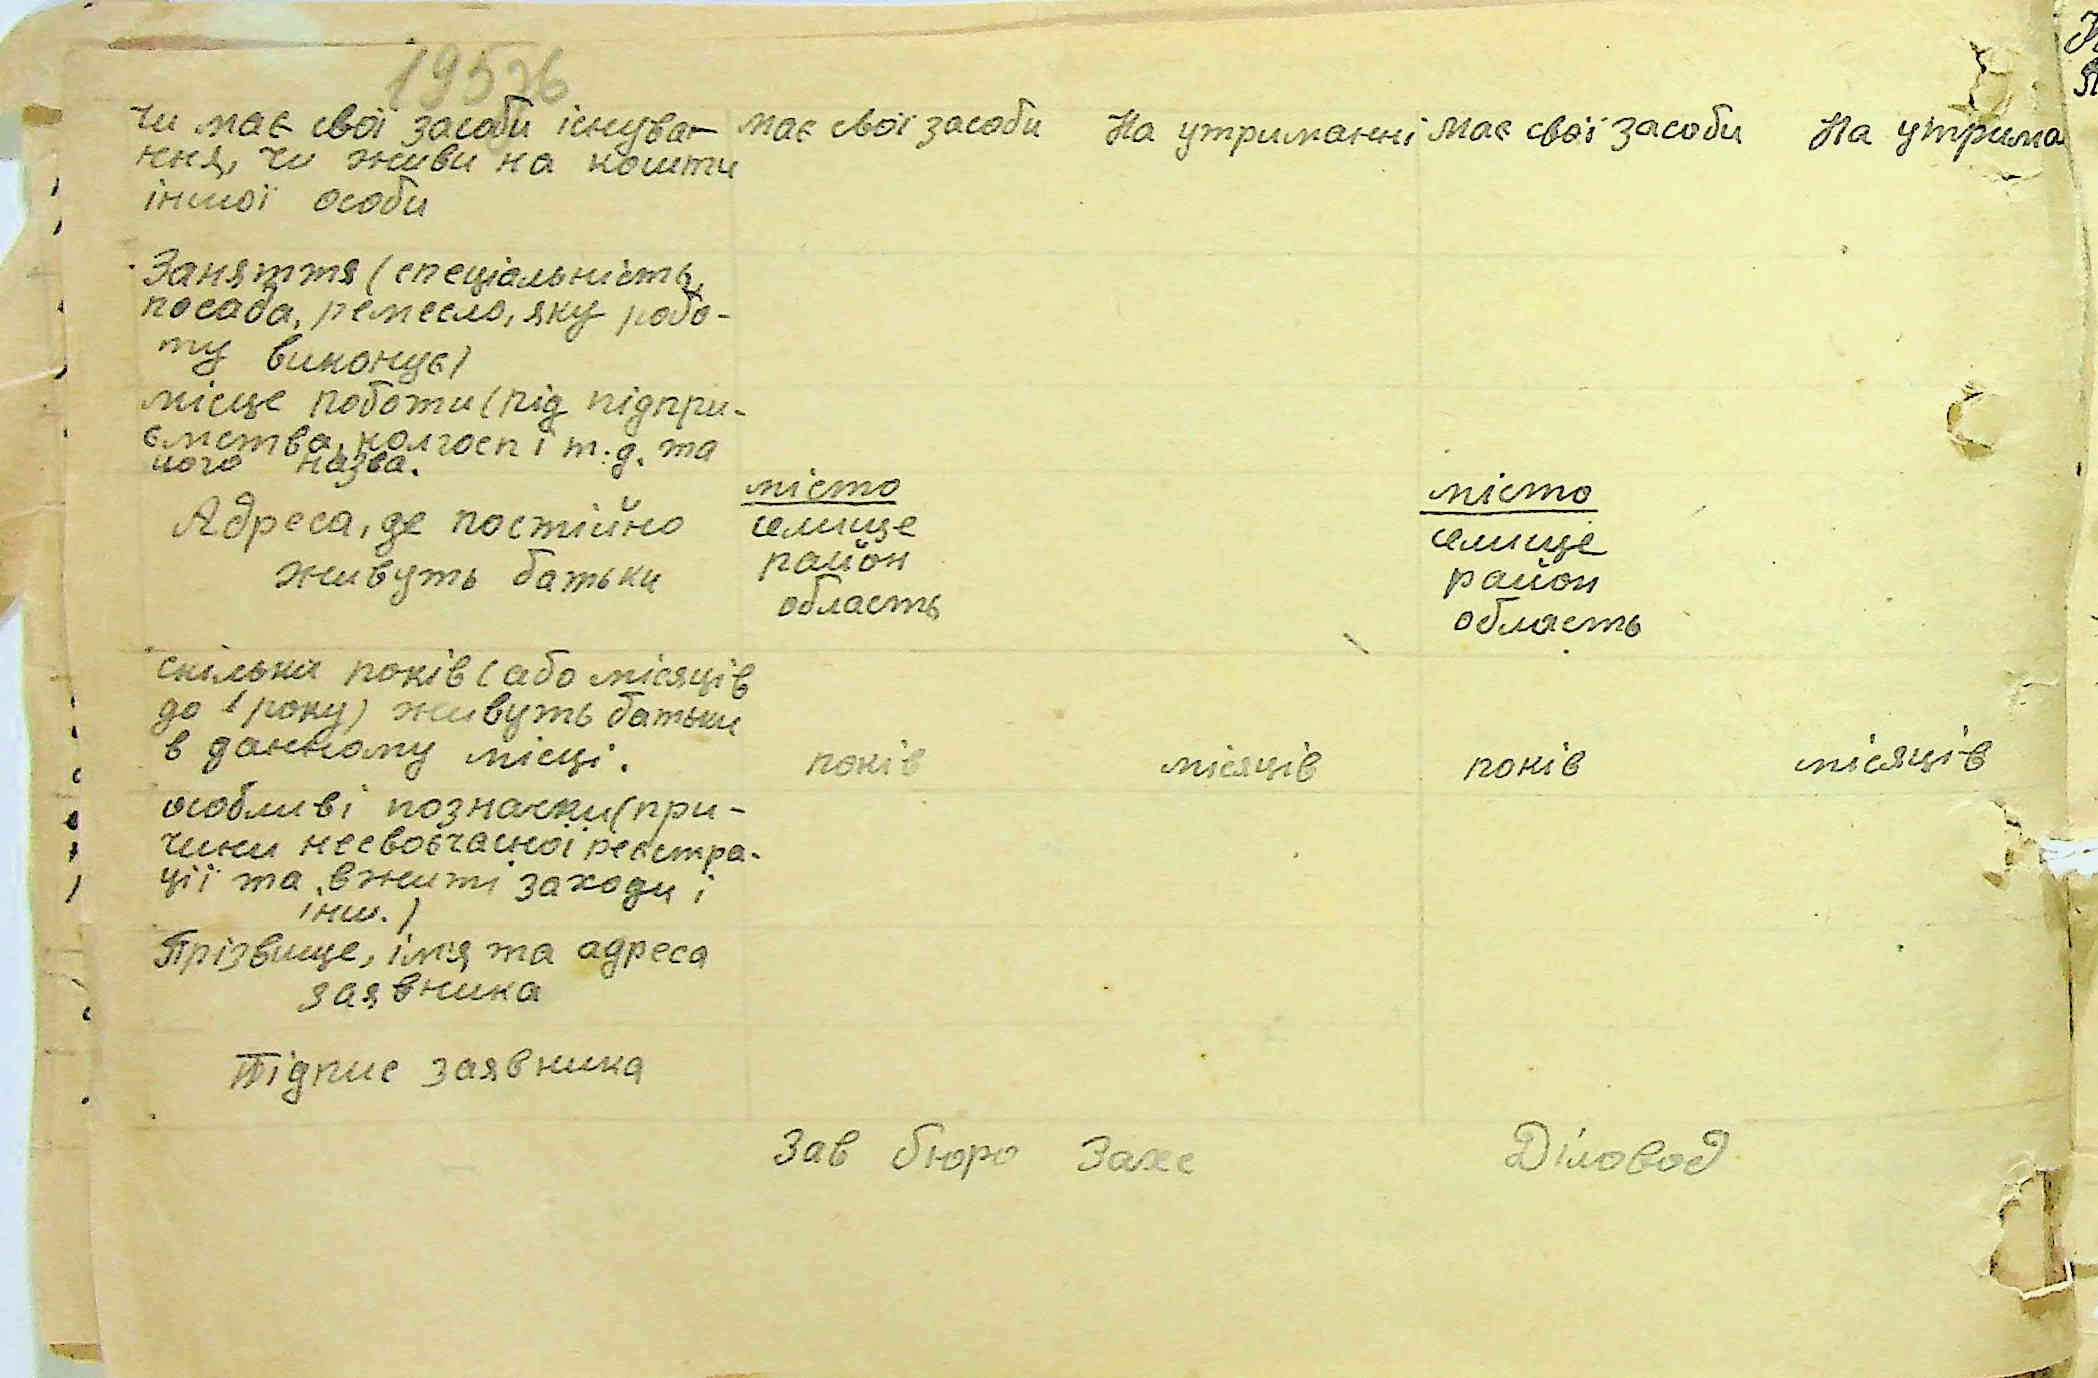 195
чи має свої засоби існуван- має свої засоби На утриманні має свої засоби На утрима
ння, чи живи на кошти
іншої особи
Заняття (спеціальність,
посада, ремесло, яку робо-
ту виконує)
місце роботи (під підпри-
ємства, колгосп і т.д. та
його назва.
Адреса, де постійно
живуть батьки
місто
селище
район
область
місто
селище
район
область
скільки років (або місяців
до 1 року) живуть батьки
в данному місці. років місяців років місяців
особливі позначки (при-
чини несвоєчасної реєстра-
ції та вжиті заходи і
інш.)
Прізвище, імя та адреса
заявника
Підпис заявника
Зав бюро Загс Діловод